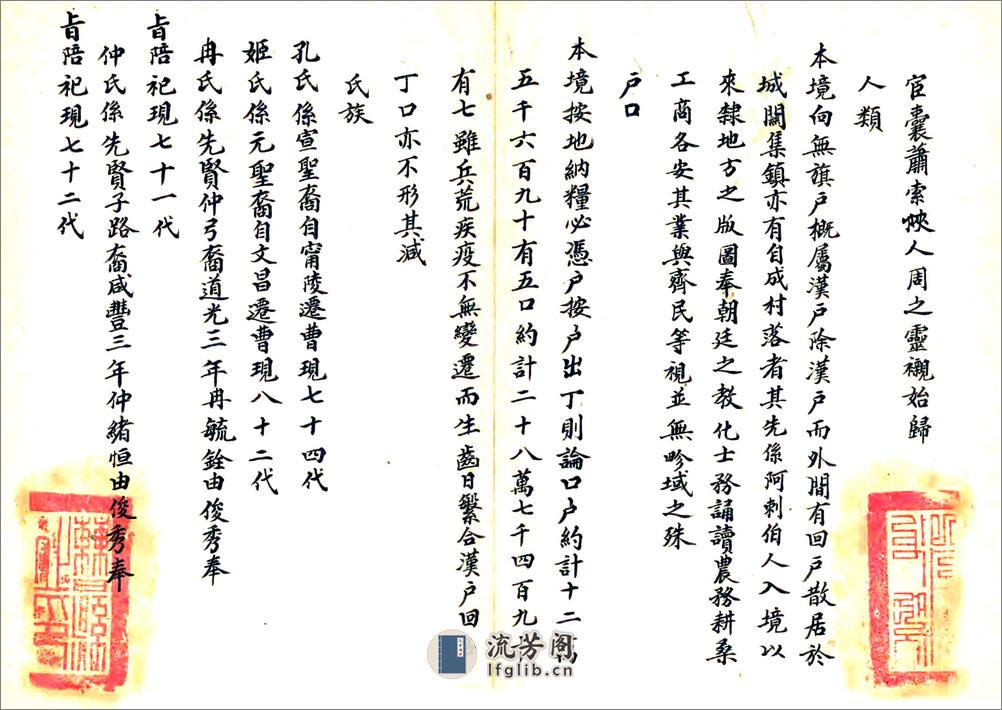 宦囊蕭索幙人周之靈櫬始歸
人類
本境向無旗戶概屬漢戶除漢戶而外閒有回戶散居於
城關集鎮亦有自成村落者其先係阿剌伯人入境以
來隸地方之版圖奉朝廷之教化士務誦讀農務耕桑
工商各安其業與齊民等視並無畛域之殊
戶口
本境按地納糧必憑戶按戶出丁則論口戶約計十二萬
五千六百九十有五口約計二十八萬七千四百九
有七雖兵荒疾疫不無變遷而生齒日繁合漢戶回
丁口亦不形其減
氏族
孔氏係宣聖裔自甯陵遷曹現七十四代
姬氏係元聖裔自文昌遷曹現八十二代
冉氏係先賢仲弓裔道光三年冉毓銓由俊秀奉
旨陪祀現七十一代
仲氏係先賢子路裔咸豐三年仲緒恒由俊秀奉
旨陪祀現七十二代
流芳阁
lfglib.cn